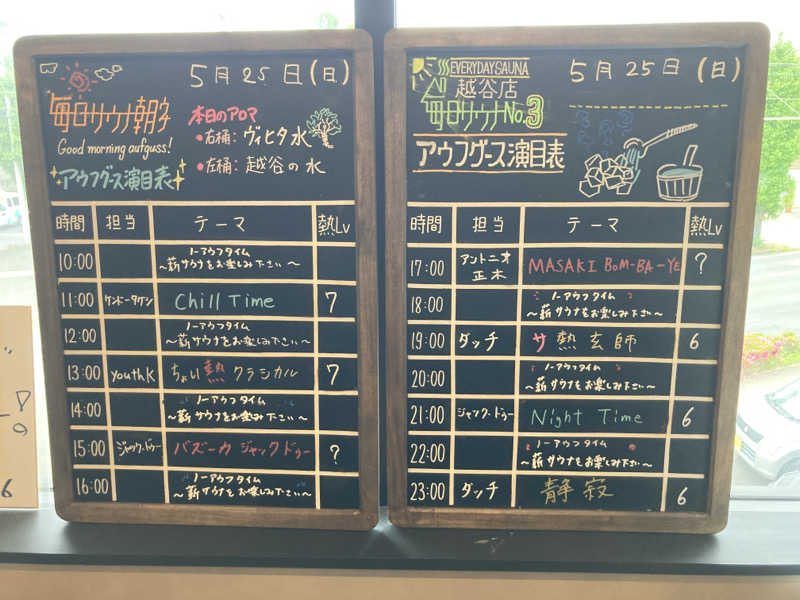 5月25日(日)
毎日サウナ朝子
Good morning aufguss!
アウフグース演目表
本日のアロマ
•右桶: ヴィヒタ水
•左桶: 越谷の水
時間 担当 テーマ 熱Lv
10:00 ノーアウフタイム
〜薪サウナをお楽しみ下さい〜
11:00 ケンドータケシ Chill Time 7
12:00 ノーアウフタイム
〜薪サウナをお楽しみ下さい〜
13:00 youthK ちょい熱クラシカル 7
14:00 ノーアウフタイム
〜薪サウナをお楽しみ下さい〜
15:00 ジャック・ドゥー バズーカ ジャックドゥー ?
16:00 ノーアウフタイム
〜薪サウナをお楽しみ下さい〜
EVERYDAY SAUNA
越谷店
毎日サウナNo.3
5月25日(日)
アウフグース演目表
時間 担当 テーマ 熱Lv
17:00 アントニオ正木 MASAKI BOM-BA-YE ?
18:00 ノーアウフタイム
〜薪サウナをお楽しみ下さい〜
19:00 ダッチ サ熱玄師 6
20:00 ノーアウフタイム
〜薪サウナをお楽しみ下さい〜
21:00 ジャック・ドゥー Night Time 6
22:00 ノーアウフタイム
〜薪サウナをお楽しみ下さい〜
23:00 ダッチ 静寂 6
6